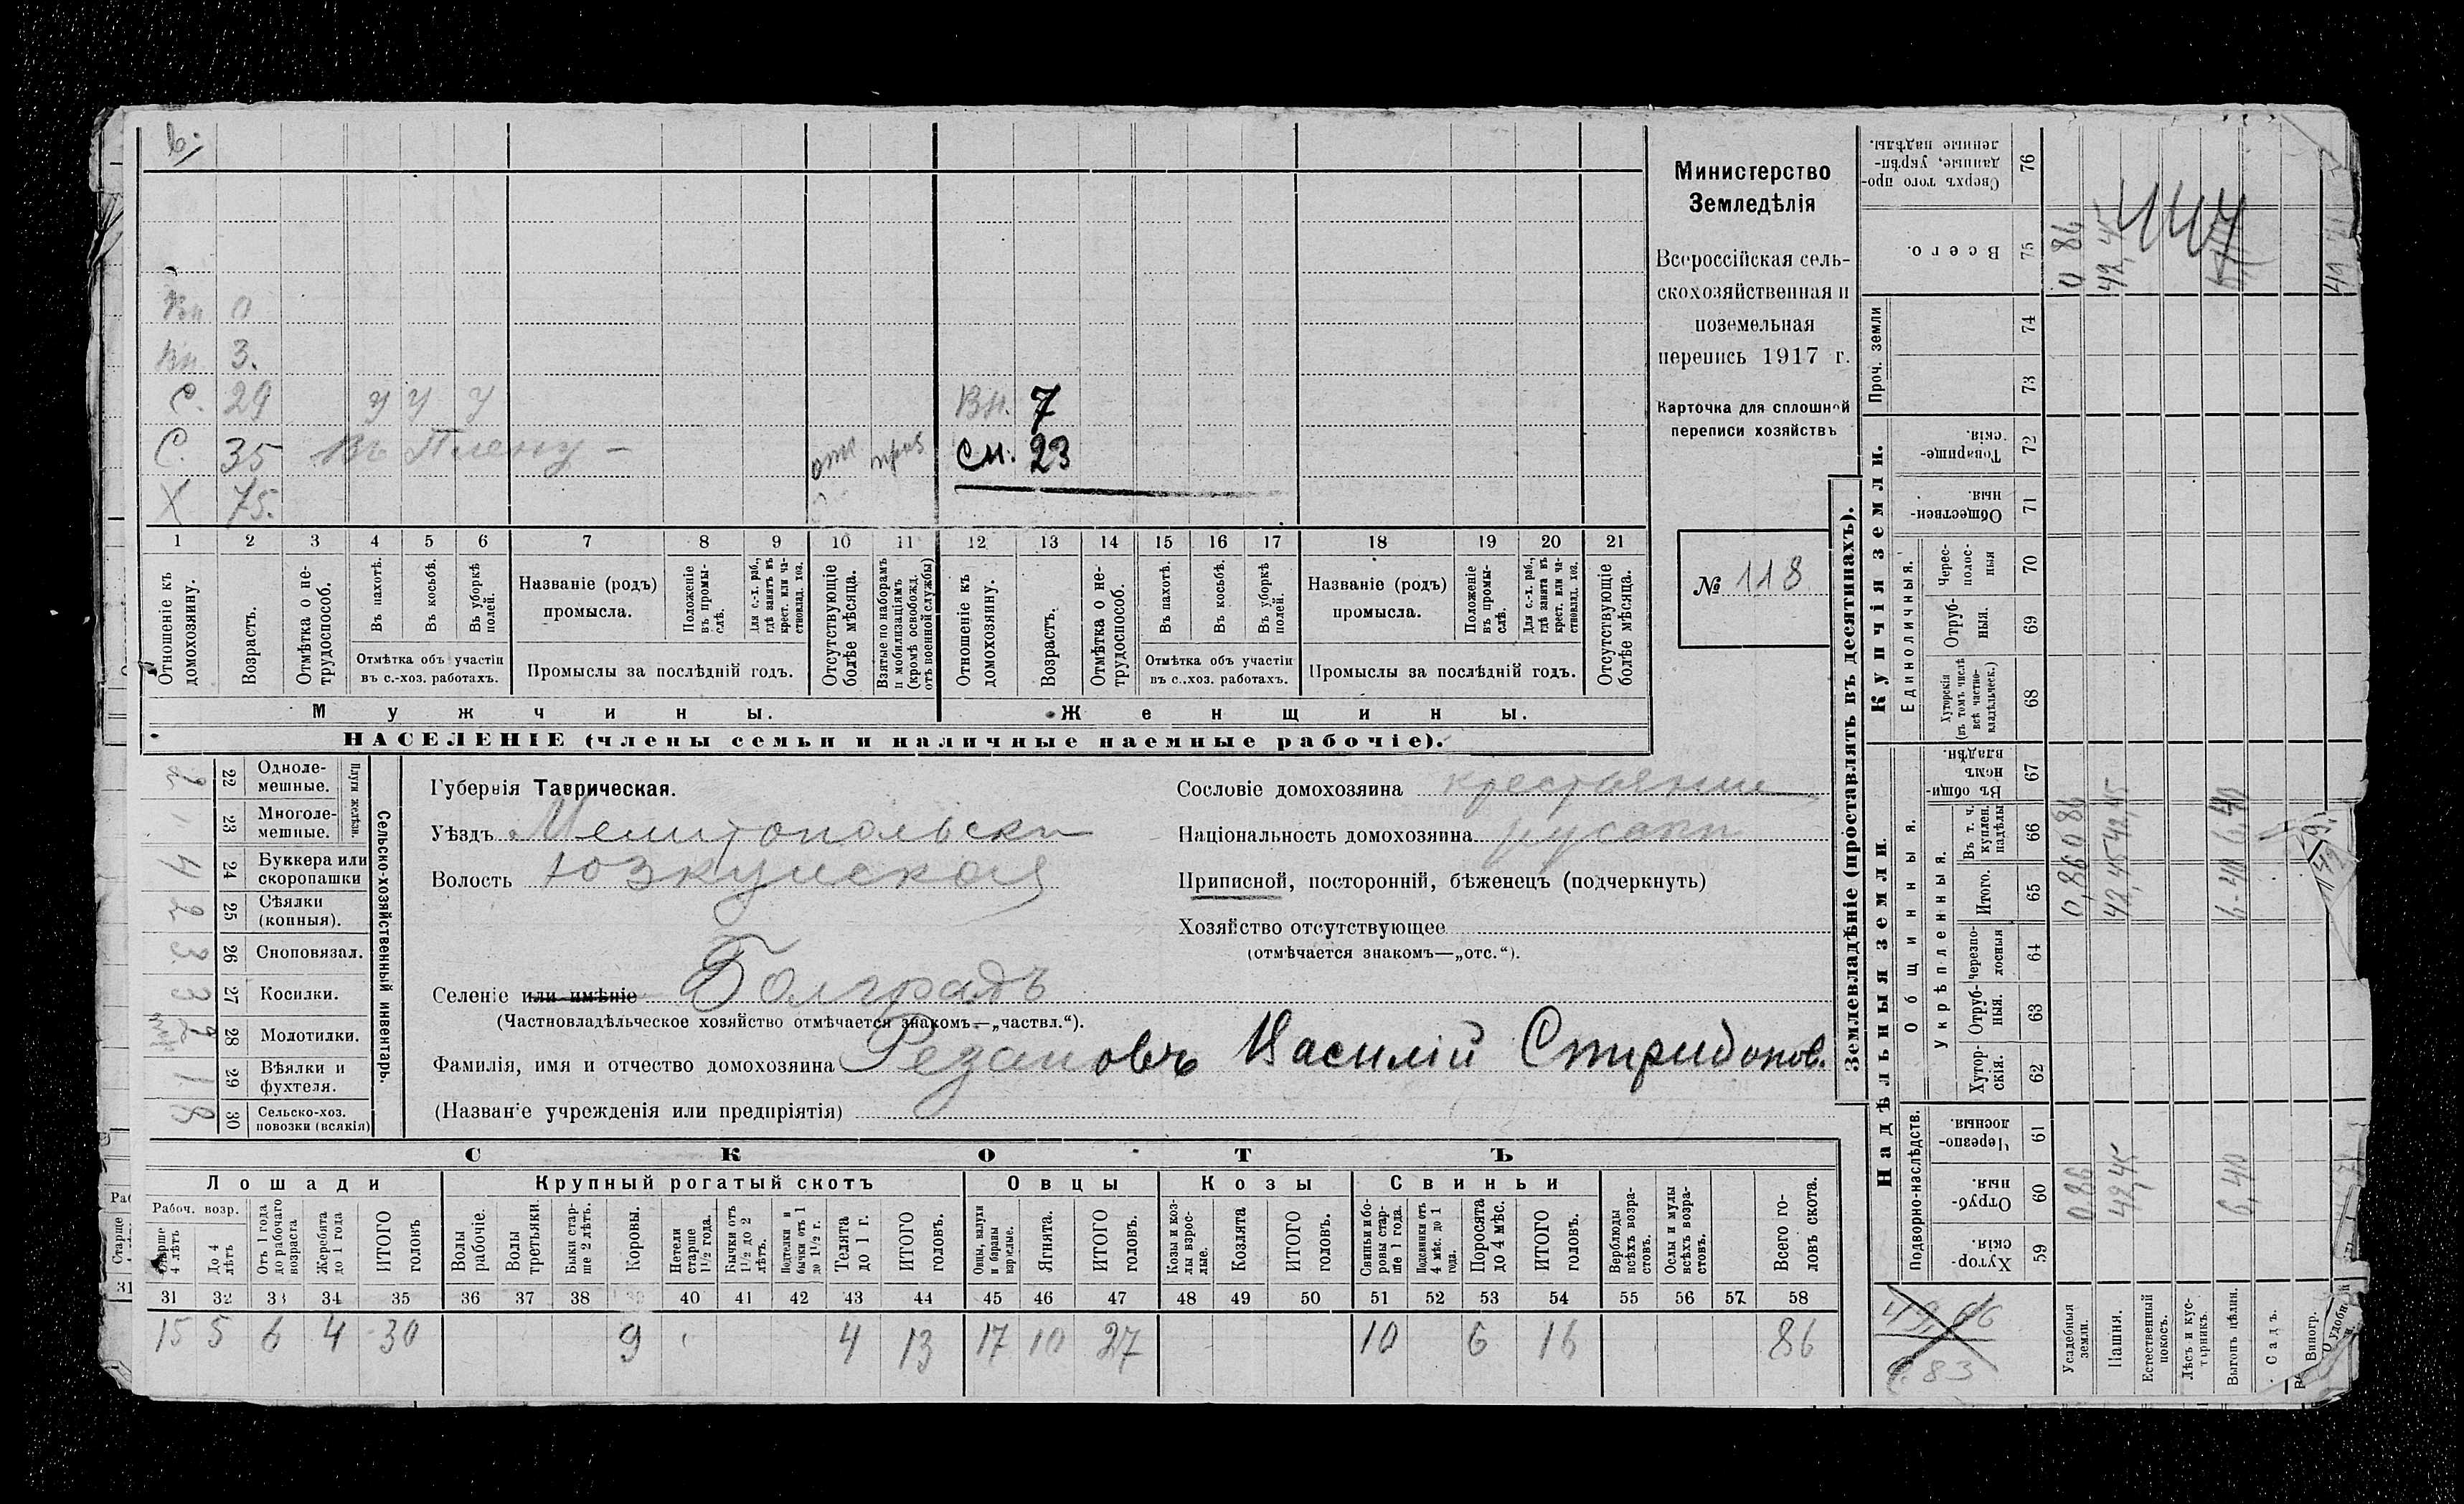 6.
Вн. 0
Вн. 3.
С. 29 У У У Вн. 7
С. 35 Въ Плену – отс приз Сн. 23
Х 75.
1 2 3 4 5 6 7 8 9 10 11 12 13 14 15 16 17 18 19 20 21
Отношеніе къ домохозяину.
Возрастъ.
Отмѣтка о не-трудоспособ.
Въ пахотѣ.
Въ косьбѣ.
Въ уборкѣ полей.
Отмѣтка объ участіи въ с.-хоз. работахъ.
Названіе (родъ) промысла.
Положеніе въ промы-слѣ.
Для с.-х. раб., гдѣ занятъ въ крест. или ча-стновлад. хоз.
Промыслы за послѣдній годъ.
Отсутствующіе болѣе мѣсяца.
Взятые по наборамъ и мобилизаціямъ (кромѣ освобожд. отъ военной службы)
Отношеніе къ домохозяину.
Возрастъ.
Отмѣтка о не-трудоспособ.
Въ пахотѣ.
Въ косьбѣ.
Въ уборкѣ полей.
Отмѣтка объ участіи въ с..хоз. работахъ.
Названіе (родъ) промысла.
Положеніе въ промы-слѣ.
Для с.-х. раб., гдѣ занята въ крест. или ча-стновлад. хоз.
Промыслы за послѣдній годъ.
Отсутствующіе болѣе мѣсяца.
Мужчины.
Женщины.
НАСЕЛЕНІЕ (члены семьи и наличные наемные рабочіе).
Министерство
Земледѣлія
Всероссійская сель-
скохозяйственная и
поземельная
перепись 1917 г.
Карточка для сплошной
переписи хозяйствъ
№ 118
Сельско-хозяйственный инвентарь.
Плуги желѣзн.
2 22 Одноле-мешные.
23 Многоле-мешные.
4 24 Буккера или скоропашки
2 25 Сѣялки (конныя).
3 26 Сноповязал.
3 27 Косилки.
28 Молотилки.
1 29 Вѣялки и фухтеля.
8 30 Сельско-хоз. повозки (всякія)
Губернія Таврическая.
Уѣздъ Мелитопольски
Волость Юзкуйская
Селеніе или имѣніе Болградъ
(Частновладѣльческое хозяйство отмѣчается знакомъ—„частвл.“).
Фамилія, имя и отчество домохозяина Резановъ Василій Спиридонов.
(Названіе учрежденія или предпріятія)
Сословіе домохозяина крестьянин
Національность домохозяина
Приписной, посторонній, бѣженецъ (подчеркнуть)
Хозяйство отсутствующее
(отмѣчается знакомъ—„отс.“).
СКОТЪ
Лошади
Крупный рогатый скотъ
Овцы
Козы
Свиньи
Рабоч. возр.
Старше 4 лѣтъ
До 4 лѣтъ
Отъ 1 года до рабочаго возраста
Жеребята до 1 года
ИТОГО головъ
Волы рабочіе.
Волы третьяки.
Быки стар-ше 2 лѣтъ.
Коровы.
Нетели старше 1½ года.
Бычки отъ 1½ до 2 лѣтъ.
Подтелки и бычки отъ 1 до 1½ г.
Телята до 1 г.
ИТОГО головъ.
Овцы, валухи и бараны взрослые.
Ягнята.
ИТОГО головъ.
Козы и коз-лы взрос-лые.
Козлята
ИТОГО головъ.
Свиньи и бо-ровы стар-ше 1 года.
Подсвинки отъ 4 мѣс. до 1 года.
Поросята до 4 мѣс.
ИТОГО головъ.
Верблюды всѣхъ возра-стовъ.
Ослы и мулы всѣхъ возра-стовъ.
Всего го-ловъ скота.
31 32 33 34 35 36 37 38 39 40 41 42 43 44 45 46 47 48 49 50 51 52 53 54 55 56 57 58
15 5 6 4 30 9 4 13 17 10 27 10 6 16 86
Землевладѣніе (проставлять въ десятинахъ).
Купчія земли.
Надѣльныя земли.
Сверхъ того про-данные, укрѣп-ленные надѣлы. 76
Всего. 75
0 86
42,45
Проч. земли 74 73
Товарище-скія. 72
Обществен-ныя. 71
Единоличныя.
Черес-полос-ныя 70
Отруб-ныя. 69
Хуторскія (въ томъ числѣ всѣ частно-владѣльческ.) 68
Общинныя.
Въ общи-номъ владѣн. 67
Укрѣпленныя.
Въ т. ч. куплен. надѣлы 66
0 86 42,45 6,40
Итого. 65
0,86 42,45 6-40
Черезпо-лосныя 64
Отруб-ныя. 63
Хутор-скія. 62
Подворно-наслѣдств.
Черезпо-лосныя. 61
Отруб-ныя. 60
0.86 42,45 6,40
Хутор-скія. 59
Усадебныя земли.
Пашня.
Естественный покосъ.
Лѣсъ и кус-тарникъ.
Выгонъ цѣлин.
Садъ.
Виногр.
83